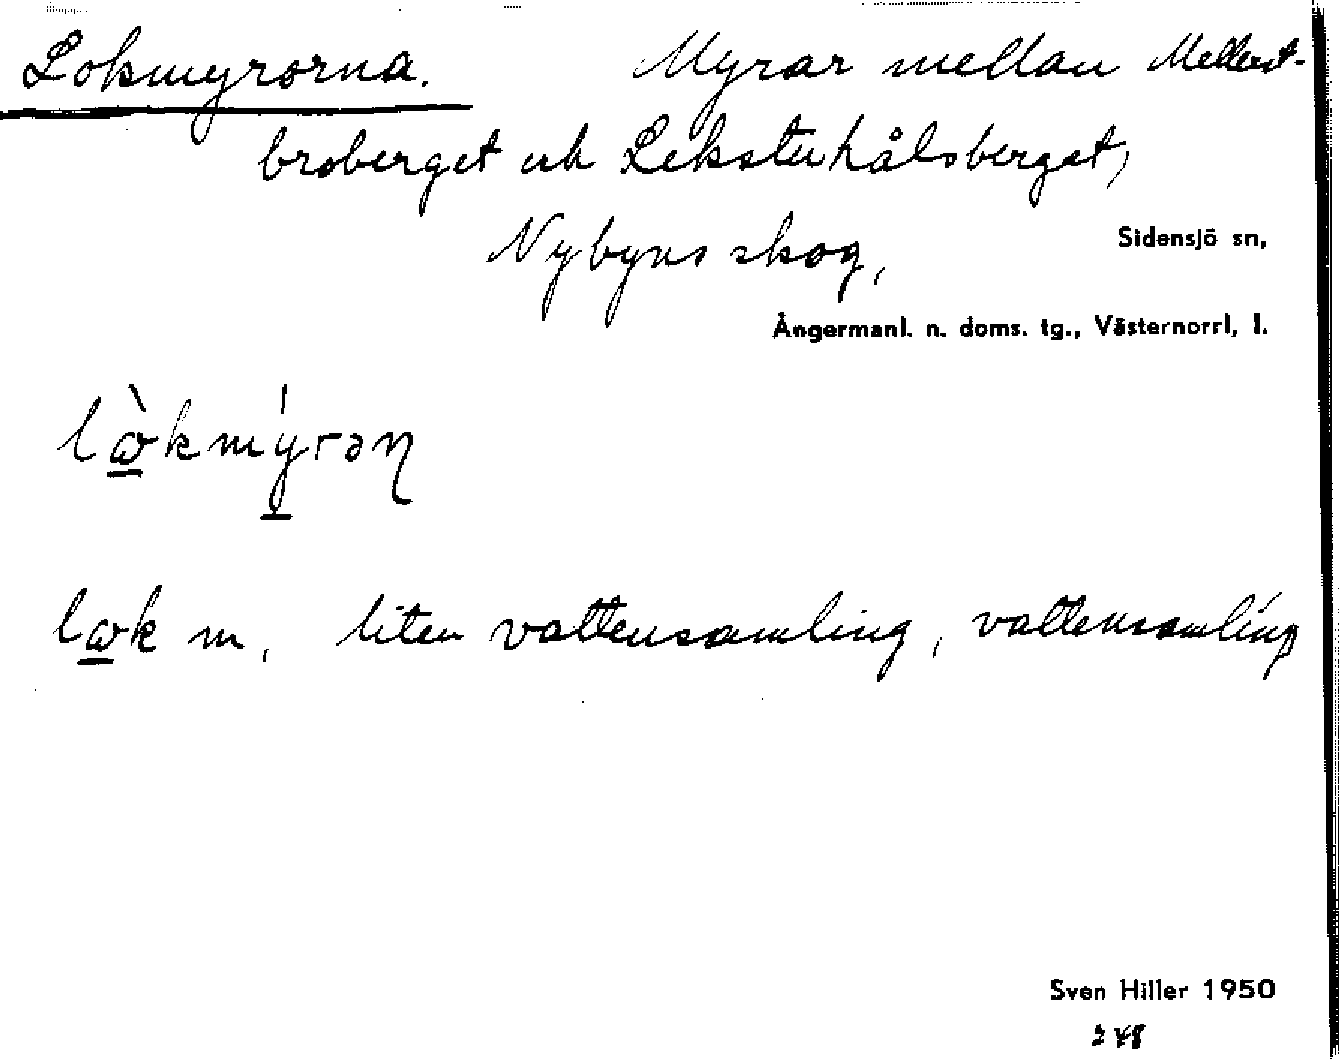 Lokmyrorna. Myrar mellan Mellust-
broberget och Lekstuhålsberget,
Nybyns skog,
Sidensjö sn,
Ångermanl. n. doms. tg., Västernorrl, l.
lò̱kmý̱rəɳ
lo̱k m, liten vattensamling, vattensamling
Sven Hiller 1950
248